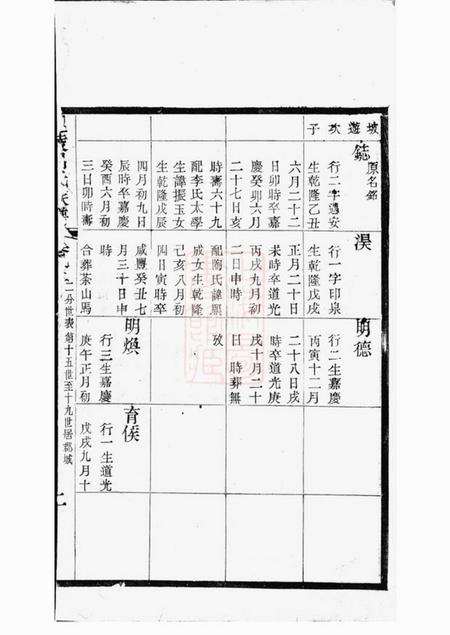 坡遊次子
鋕
原名銘
行二字邁安
生乾隆乙丑
六月二十二
日卯時卒嘉
慶癸卯六月
二十七日亥
時壽六十九
配李氏太學
生諱振玉女
生乾隆戊辰
四月初九日
辰時卒嘉慶
癸酉六月初
三日卯時壽
淏
行一字印泉
生乾隆戊戌
正月二十日
未時卒道光
丙戌九月初
二日申時
配陶氏諱熙
成女生乾隆
己亥八月初
四日寅時卒
咸豐癸丑七
月三十日申
時
合葬茶山馬
明德
行二生嘉慶
丙寅十二月
二十八日戌
時卒道光庚
戌十月二十
日 時葬無
攷
明煥
行三生嘉慶
庚午正月初
育侯
行一生道光
戊戌九月十
二分世表第十五世至十九世居郡城